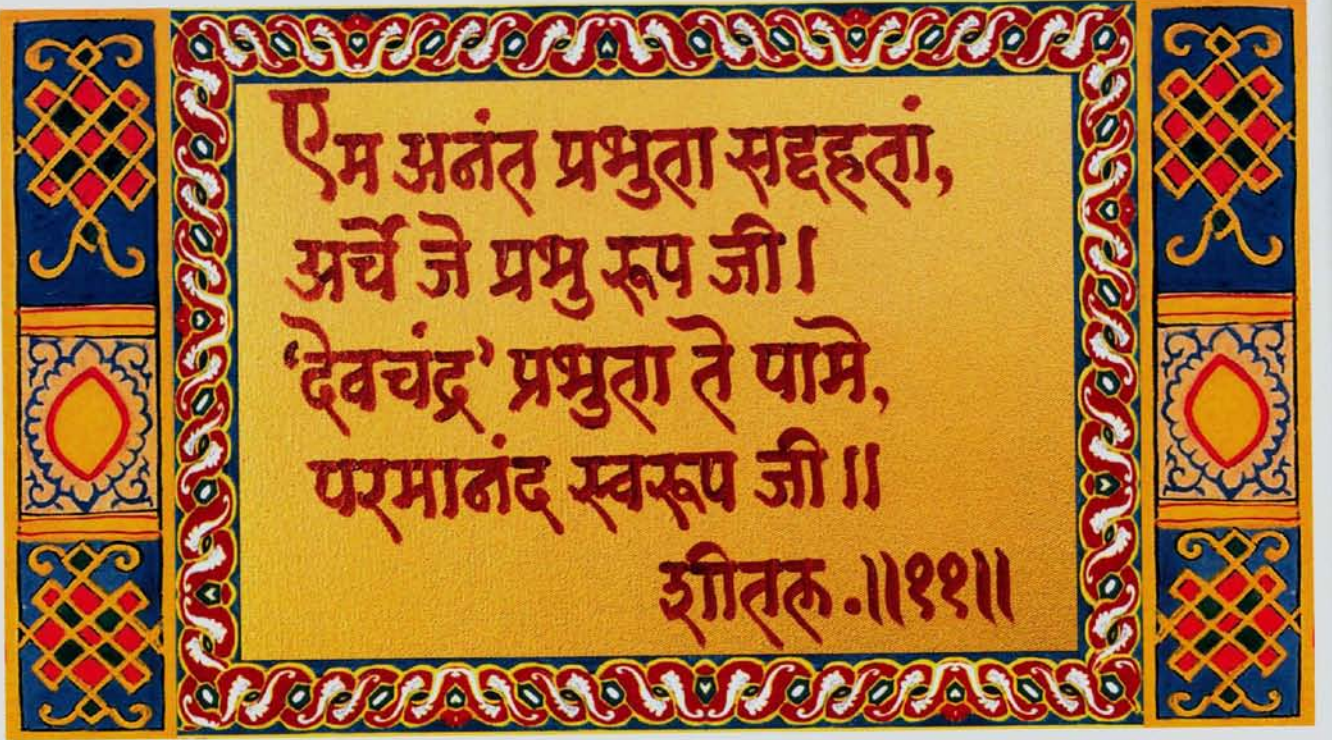 एम अनंत प्रभुता सद्दहतां,
अर्चे जे प्रभु रूप जी।
‘देवचंद्र’ प्रभुता ते पामे,
परमानंद स्वरूप जी॥
शीतल.॥११॥